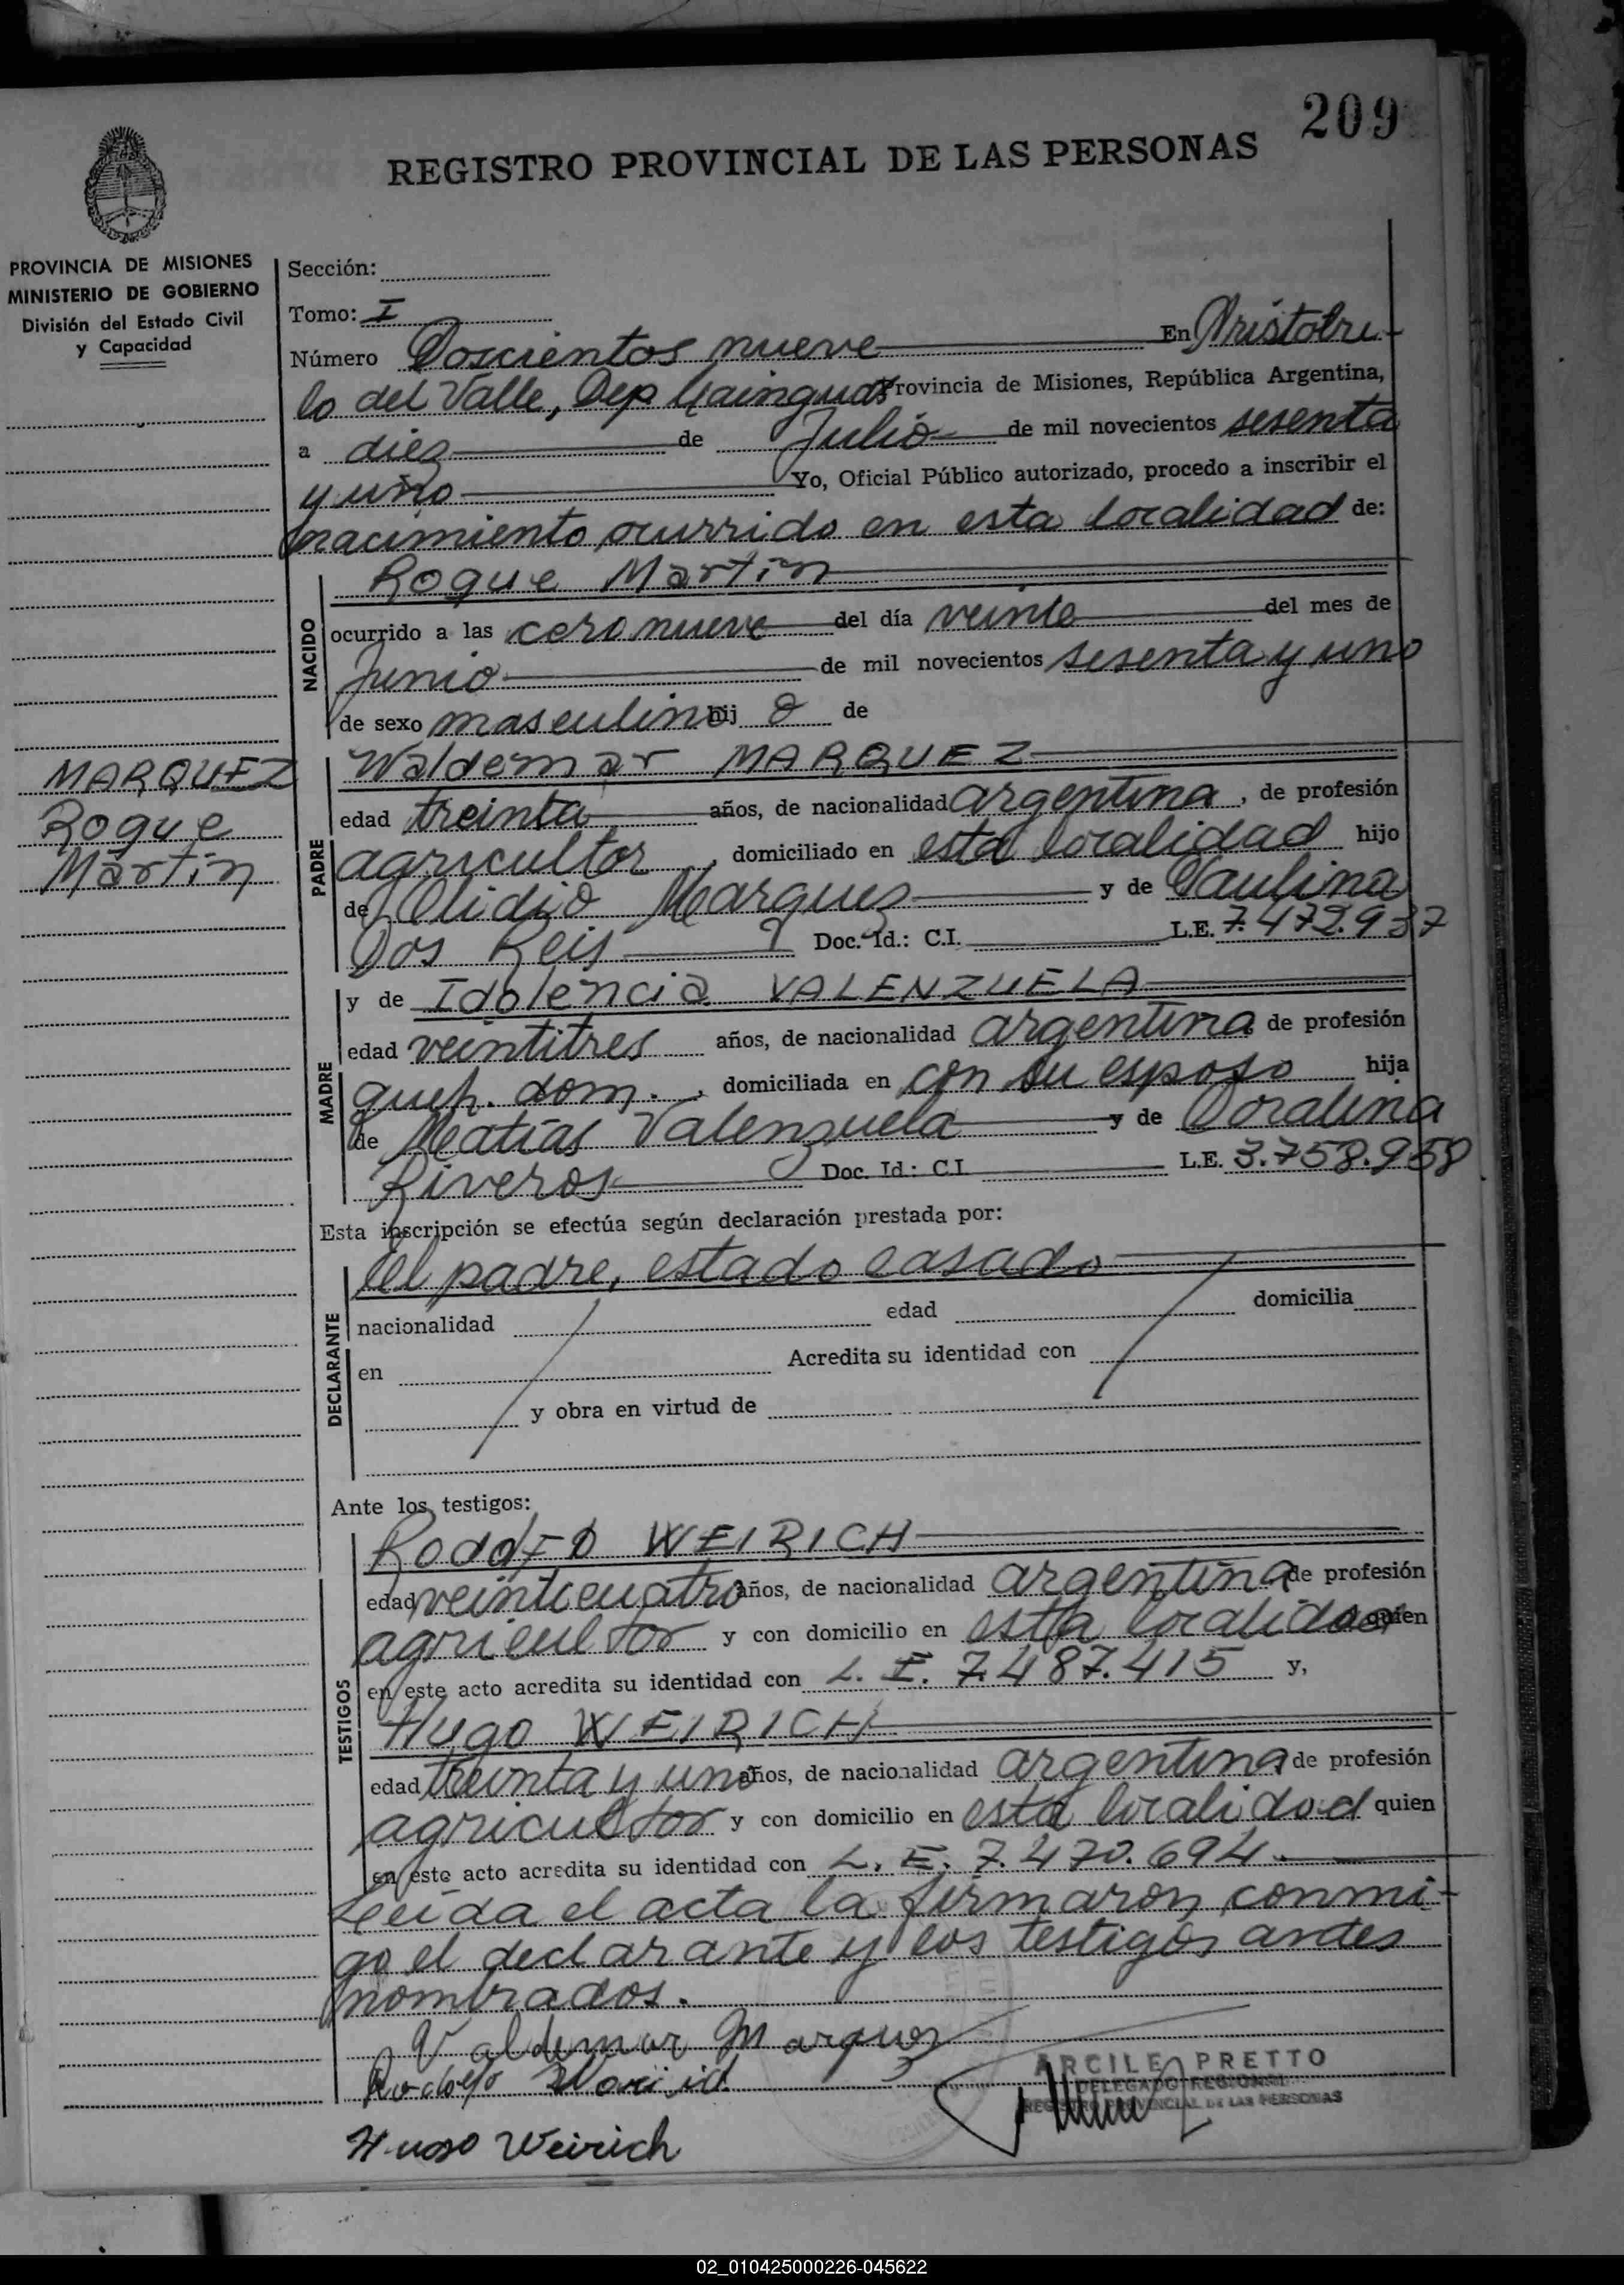 209
REGISTRO PROVINCIAL DE LAS PERSONAS
PROVINCIA DE MISIONES
MINISTERIO DE GOBIERNO
División del Estado Civil
y Capacidad
MARQUEZ
Roque
Martín
Sección:
Tomo: I
Número Doscientos nueve En Aristobu-
lo del Valle, Dep Cainguas Provincia de Misiones, República Argentina,
a diez de Julio de mil novecientos sesenta
y uno Yo, Oficial Público autorizado, procedo a inscribir el
nacimiento ocurrido en esta localidad de:
NACIDO
Roque Martín
ocurrido a las cero nueve del día veinte del mes de
Junio de mil novecientos sesenta y uno
de sexo masculino hij o de
PADRE
Waldemar MARQUEZ
edad treinta años, de nacionalidad argentina, de profesión
agricultor, domiciliado en esta localidad hijo
de Olidio Marquez y de Paulina
Dos Reis Doc. Id.: C.I. L.E. 7.472.937
MADRE
y de Idolencia VALENZUELA
edad veintitres años, de nacionalidad argentina de profesión
queh. dom., domiciliada en con su esposo hija
de Matías Valenzuela y de Doralina
Riveros Doc. Id.: C.I. L.E. 3.758.958
Esta inscripción se efectúa según declaración prestada por:
DECLARANTE
El padre, estado casado
nacionalidad edad domicilia
en Acredita su identidad con
y obra en virtud de
Ante los testigos:
TESTIGOS
Rodolfo WEIRICH
edad veinticuatro años, de nacionalidad argentina de profesión
agricultor y con domicilio en esta localidad quien
en este acto acredita su identidad con L. E. 7.487.415 y,
Hugo WEIRICH
edad treinta y uno años, de nacionalidad argentina de profesión
agricultor y con domicilio en esta localidad quien
en este acto acredita su identidad con L. E. 7.470.694.
Leída el acta la firmaron conmi-
go el declarante y los testigos antes
nombrados.
Valdemar Marquez
Rodolfo
ARCILE PRETTO
DELEGADO REGIONAL
REGISTRO PROVINCIAL DE LAS PERSONAS
Hugo Weirich
02_010425000226-045622